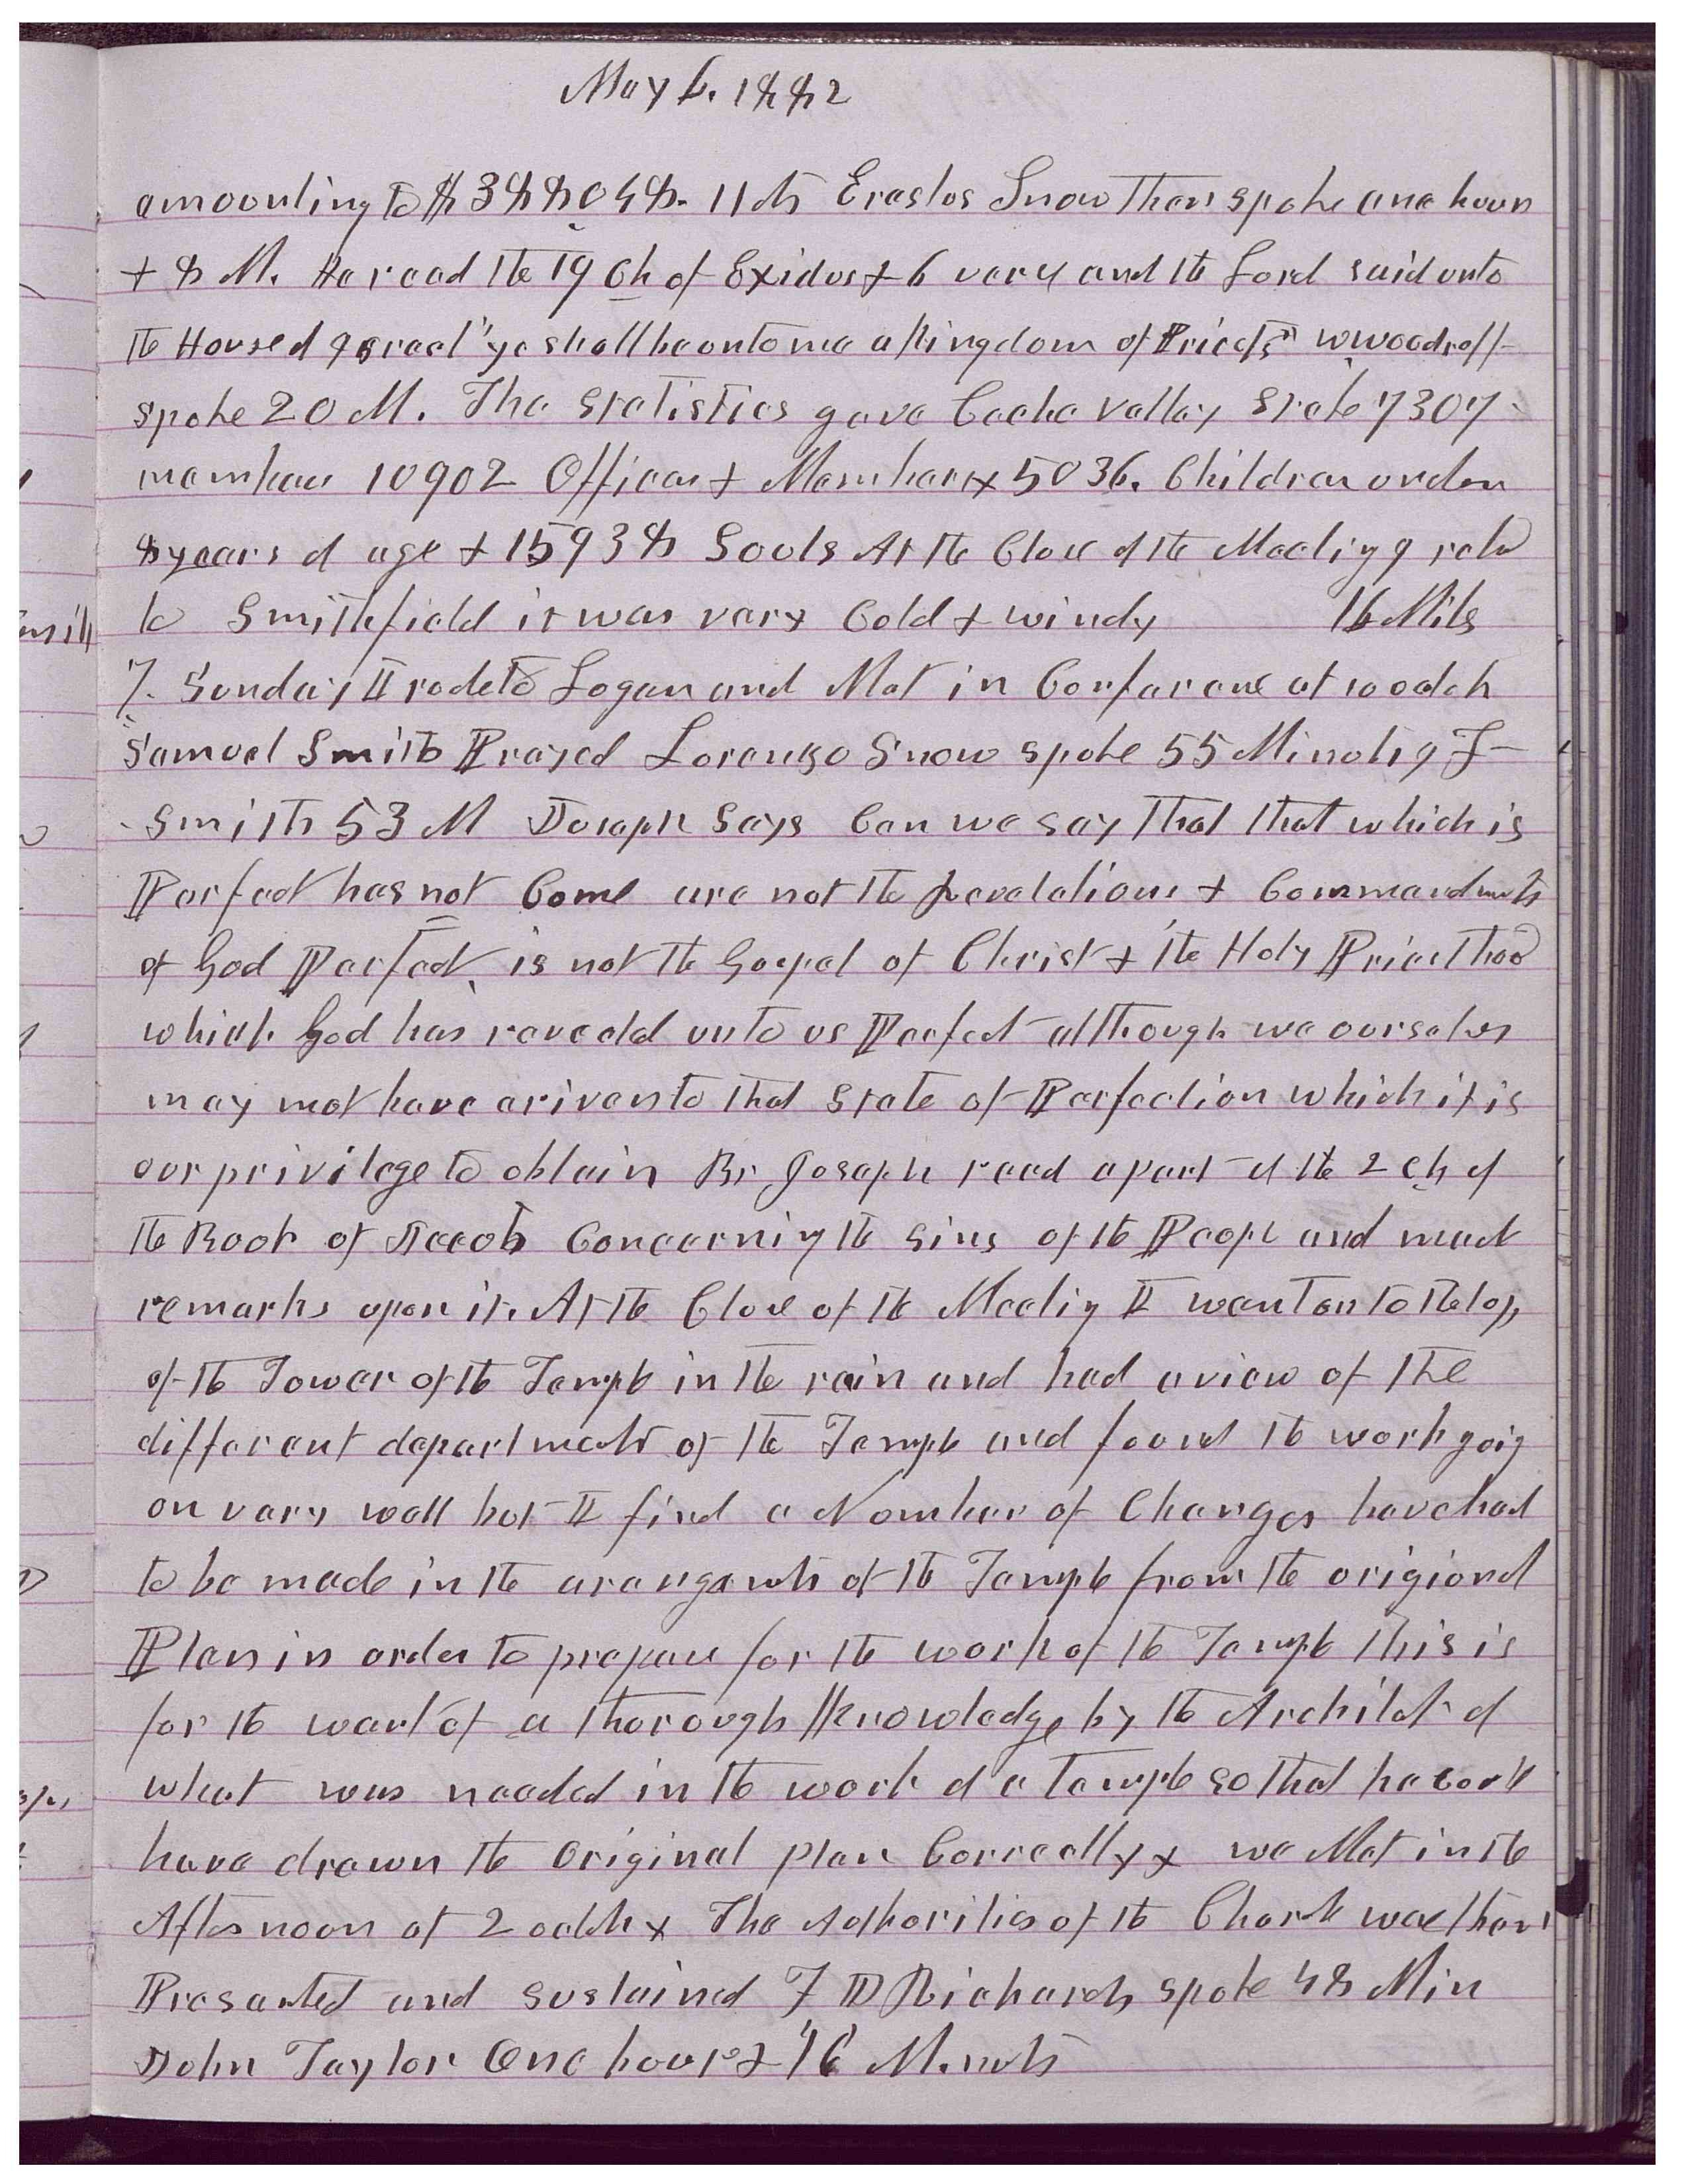 May 6. 1882
amoounting to $388048. 11 cts Erastos Snow Then spoke one hour
+ 8 M. He read the 19 ch of Exidus + 6 vers and the Lord said unto
the House of Israel "ye shall be unto me a kingdom of Priests" W woodruff
spoke 20 M. The Statistics gave Cache valley Stake 7307
members 10902 Officers & Members & 5036. Children under
8 years of age & 15938 Souls At the Close of the Meeting I rode
to Smithfield it was very Cold & windy 16 Miles
7. Sunday I rode to Logan and Met in Conferance at 10 oclok
Samuel Smith Prayed Lorenzo Snow spoke 55 Minutes J F
Smith 53 M Joseph Says Can we say that that which is
Perfect has not Come are not the Revelations & Commandments
of God Perfect, is not the Gospel of Christ & the Holy Priesthood
which God has reveeled unto us Perfect although we ourselves
may not have ariven to that State of Perfection which it is
our privilege to obtain Br Joseph read a part of the 2 ch of
the Book of Jacob Concerning the sins of the People and made
remarks upon it. At the Close of the Meeting I went on to the top
of the Tower of the Temple in the rain and had a view of the
different departments of the Temple and found the work going
on very well but I find a Number of Changes have had
to be made in the arangements of the Temple from the origional
Plan in order to prepare for the work of the Temple This is
for the want of a thorough Knowledge by the Architect of
what was needed in the work of a temple so that he could
have drawn the Original plan Correctly & we Met in the
Afternoon at 2 oclok & The Authorities of the Church were then
Presented and sustained F D Richards spoke 48 Min
John Taylor One hour & 16 Minuts